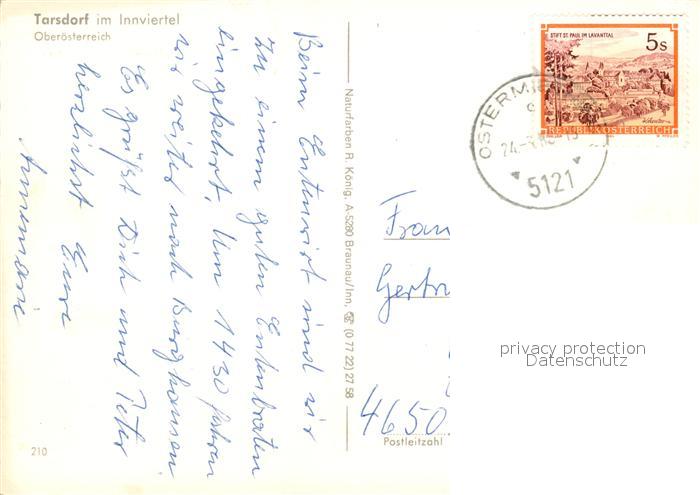 Tarsdorf im Innviertel
Oberösterreich
Beim Entenwirt sind wir
zu einem guten Entenbraten
eingekehrt. Um 14 30 fahren
wir weiter nach Burghausen
Es grüßt Dich und Peter
herzlichst Eure
Annemarie
210
Naturfarben R. König, A-5280 Braunau/Inn, ☎ (0 77 22) 27 58
STIFT ST. PAUL IM LAVANTTAL
5s
REPUBLIK ÖSTERREICH
OSTERMI
24.
5121
Frau
Gertr
4650
Postleitzahl
privacy protection
Datenschutz